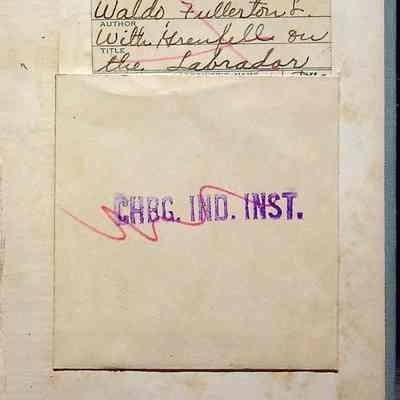 Waldo Fullerton L.
AUTHOR
With Grenfell on
TITLE
the Labrador
CHBG. IND. INST.